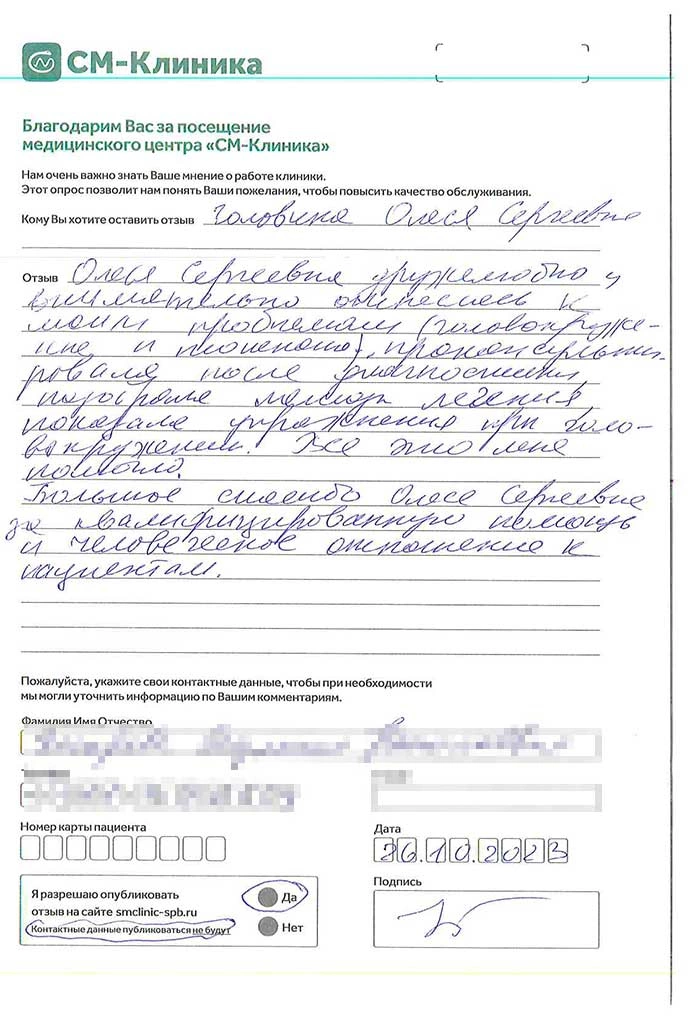 СМ-Клиника
Благодарим Вас за посещение
медицинского центра «СМ-Клиника»
Нам очень важно знать Ваше мнение о работе клиники.
Этот опрос позволит нам понять Ваши пожелания, чтобы повысить качество обслуживания.
Кому Вы хотите оставить отзыв Головина Олеся Сергеевна
Отзыв Олеся Сергеевна дружелюбно и
внимательно отнеслась к
моим проблемам (головокруже-
ние и тошнота), проконсульти-
ровала после диагностики,
подобрала методы лечения,
показала упражнения при голо-
вокружении. Все это мне
помогло.
Большое спасибо Олесе Сергеевне
за квалифицированную помощь
и человеческое отношение к
пациентам.
Пожалуйста, укажите свои контактные данные, чтобы при необходимости
мы могли уточнить информацию по Вашим комментариям.
Фамилия Имя Отчество
Номер карты пациента
Дата
26.10.2023
Я разрешаю опубликовать
отзыв на сайте smclinic-spb.ru
Контактные данные публиковаться не будут
Да
Нет
Подпись